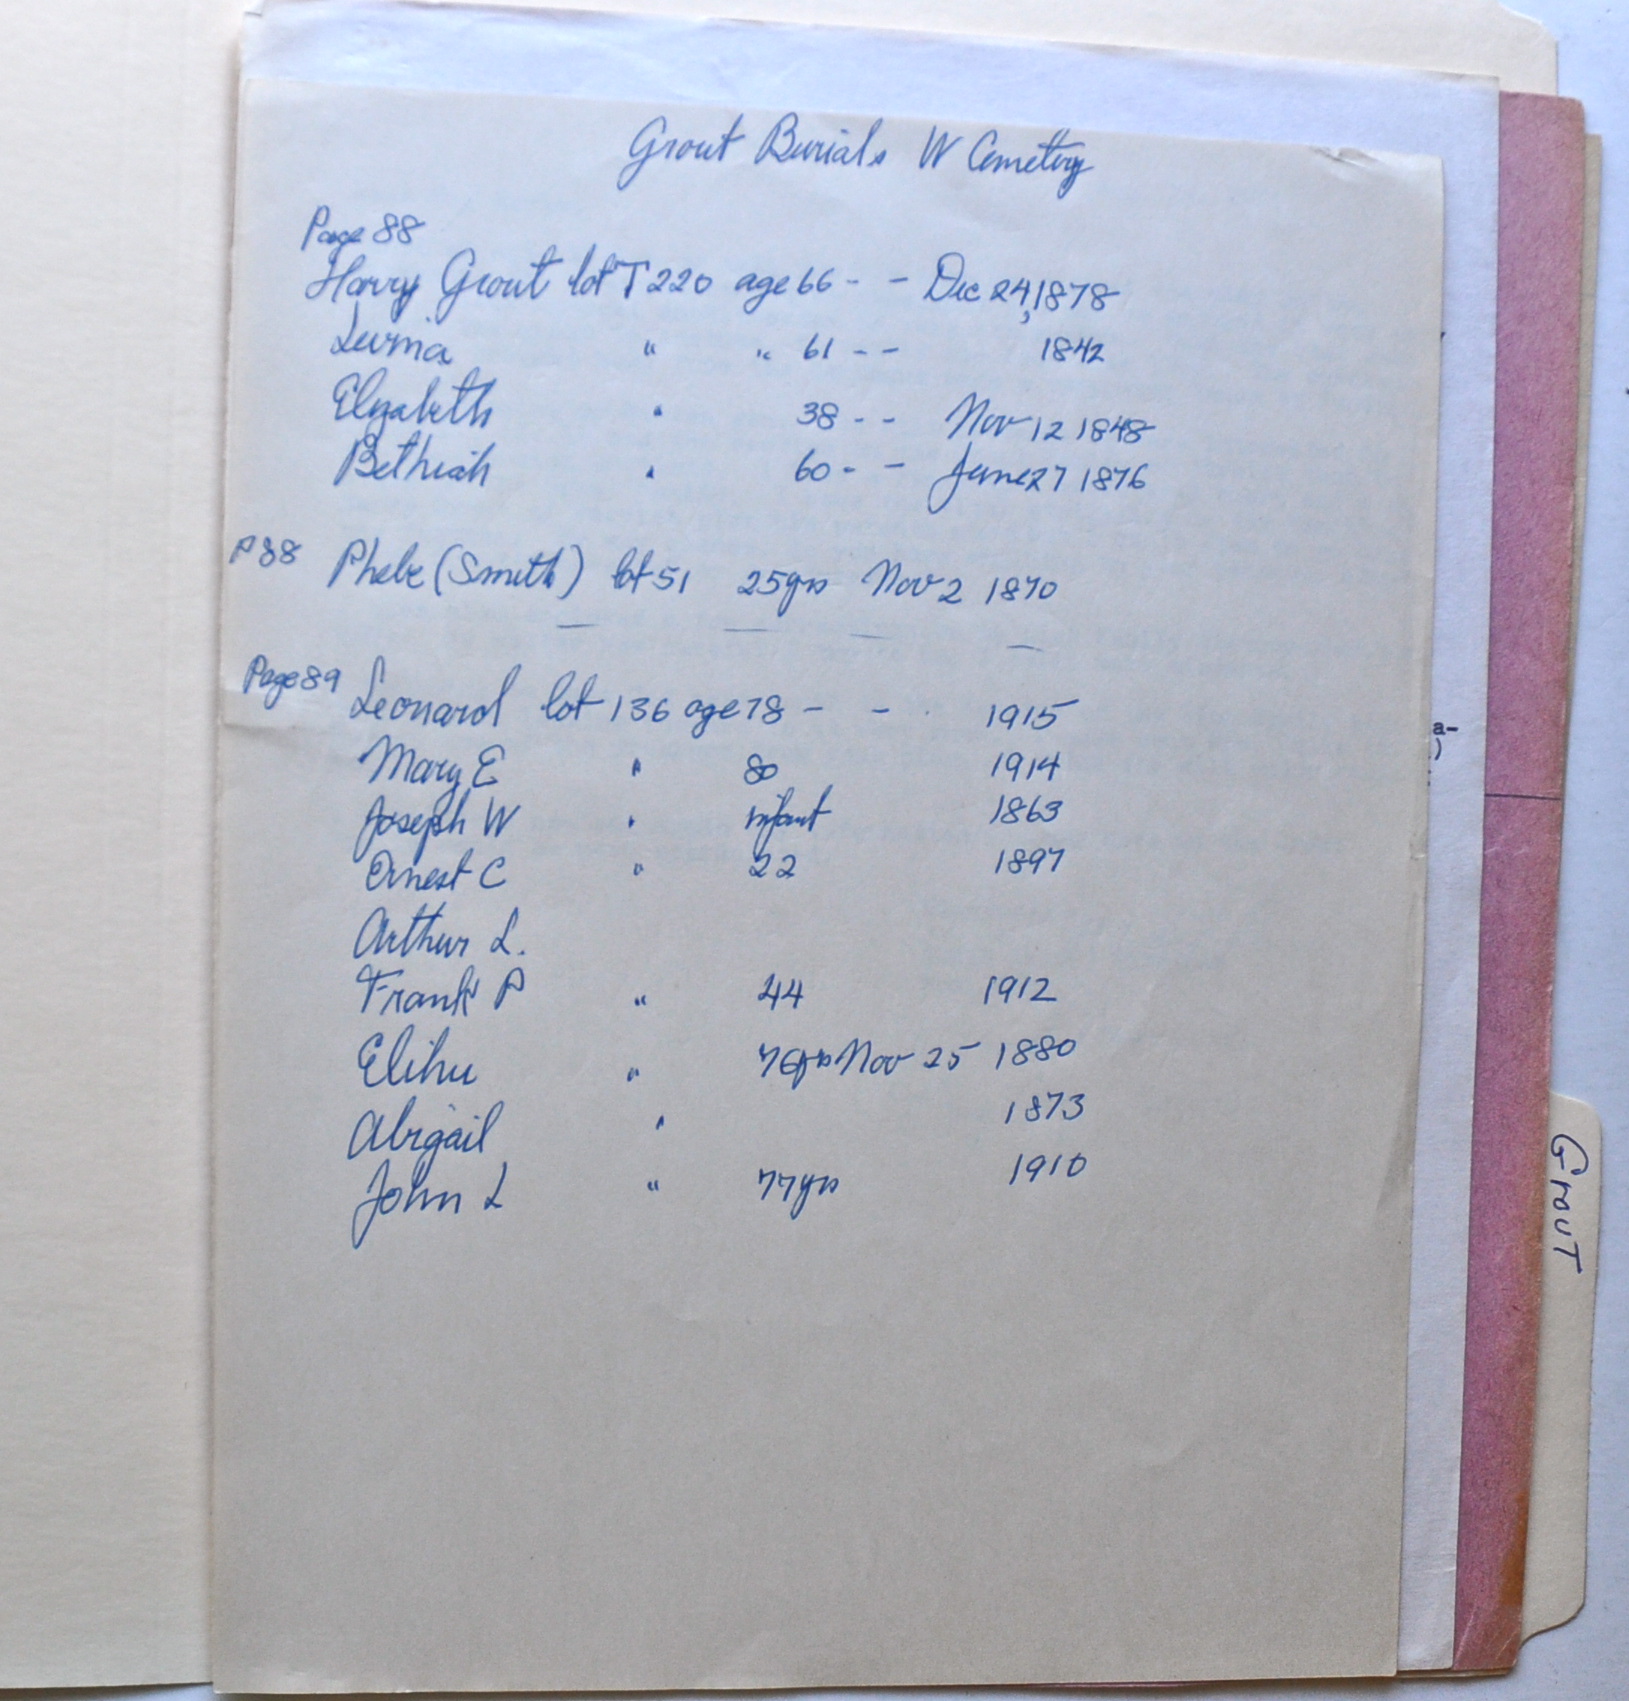 Grout Burials W Cemetery
Page 88
Harry Grout lot T 220 age 66 - - Dec 24, 1878
Lurina " " 61 - - 1842
Elizabeth " 38 - - Nov 12 1848
Bethiah " 60 - - June 27 1876
P 88 Phebe (Smith) lot 51 25 yrs Nov 2 1870
Page 89 Leonard lot 136 age 78 - - 1915
Mary E " 80 1914
Joseph W " infant 1863
Ernest C " 22 1897
Arthur L.
Frank P " 44 1912
Elihu " 76 yrs Nov 25 1880
Abigail " 1873
John L " 77 yrs 1910
a-
)
Grout